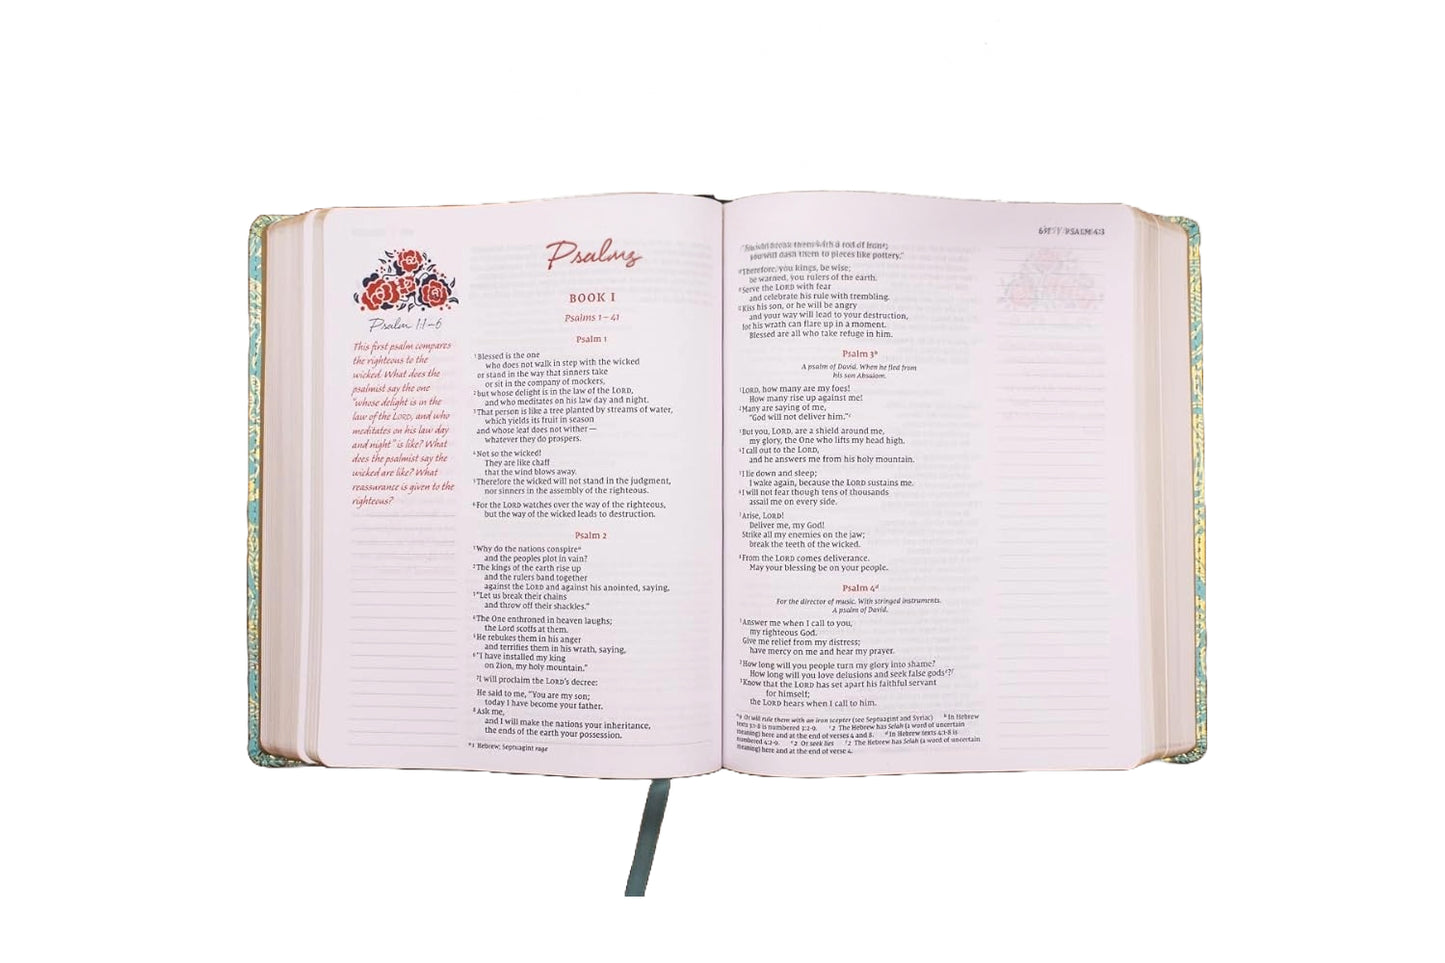 Psalm 1:1–6
This first psalm compares
the righteous to the
wicked. What does the
psalmist say the one
"whose delight is in the
law of the LORD, and who
meditates on his law day
and night" is like? What
does the psalmist say the
wicked are like? What
reassurance is given to the
righteous?
Psalms
BOOK I
Psalms 1–41
Psalm 1
1Blessed is the one
who does not walk in step with the wicked
or stand in the way that sinners take
or sit in the company of mockers,
2but whose delight is in the law of the LORD,
and who meditates on his law day and night.
3That person is like a tree planted by streams of water,
which yields its fruit in season
and whose leaf does not wither—
whatever they do prospers.
4Not so the wicked!
They are like chaff
that the wind blows away.
5Therefore the wicked will not stand in the judgment,
nor sinners in the assembly of the righteous.
6For the LORD watches over the way of the righteous,
but the way of the wicked leads to destruction.
Psalm 2
1Why do the nations conspire a
and the peoples plot in vain?
2The kings of the earth rise up
and the rulers band together
against the LORD and against his anointed, saying,
3"Let us break their chains
and throw off their shackles."
4The One enthroned in heaven laughs;
the Lord scoffs at them.
5He rebukes them in his anger
and terrifies them in his wrath, saying,
6"I have installed my king
on Zion, my holy mountain."
7I will proclaim the LORD's decree:
He said to me, "You are my son;
today I have become your father.
8Ask me,
and I will make the nations your inheritance,
the ends of the earth your possession.
a1 Hebrew; Septuagint rage
PSALM 4:3
break them with a rod of iron;
you will dash them to pieces like pottery."
Therefore, you kings, be wise;
be warned, you rulers of the earth.
Serve the LORD with fear
and celebrate his rule with trembling.
Kiss his son, or he will be angry
and your way will lead to your destruction,
for his wrath can flare up in a moment.
Blessed are all who take refuge in him.
Psalm 3b
A psalm of David. When he fled from
his son Absalom.
1LORD, how many are my foes!
How many rise up against me!
2Many are saying of me,
"God will not deliver him."c
3But you, LORD, are a shield around me,
my glory, the One who lifts my head high.
4I call out to the LORD,
and he answers me from his holy mountain.
5I lie down and sleep;
I wake again, because the LORD sustains me.
6I will not fear though tens of thousands
assail me on every side.
7Arise, LORD!
Deliver me, my God!
Strike all my enemies on the jaw;
break the teeth of the wicked.
8From the LORD comes deliverance.
May your blessing be on your people.
Psalm 4d
For the director of music. With stringed instruments.
A psalm of David.
1Answer me when I call to you,
my righteous God.
Give me relief from my distress;
have mercy on me and hear my prayer.
2How long will you people turn my glory into shame?
How long will you love delusions and seek false gods e?f
3Know that the LORD has set apart his faithful servant
for himself;
the LORD hears when I call to him.
9 Or will rule them with an iron scepter (see Septuagint and Syriac) b In Hebrew
texts 3:1-8 is numbered 3:2-9. c2 The Hebrew has Selah (a word of uncertain
meaning) here and at the end of verses 4 and 8. d In Hebrew texts 4:1-8 is
numbered 4:2-9. e2 Or seek lies f2 The Hebrew has Selah (a word of uncertain
meaning) here and at the end of verse 4.